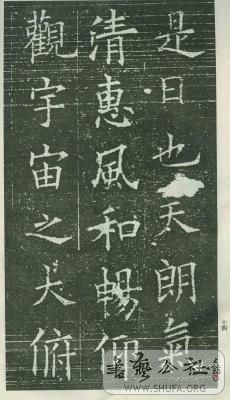 是日也天朗氣
清惠風和暢仰
觀宇宙之大俯
十四
書藝公社
WWW.SHUFA.ORG